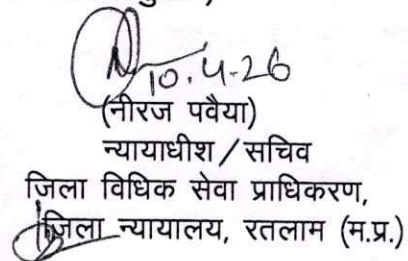 10.4.26
(नीरज पवैया)
न्यायाधीश / सचिव
जिला विधिक सेवा प्राधिकरण,
जिला न्यायालय, रतलाम (म.प्र.)